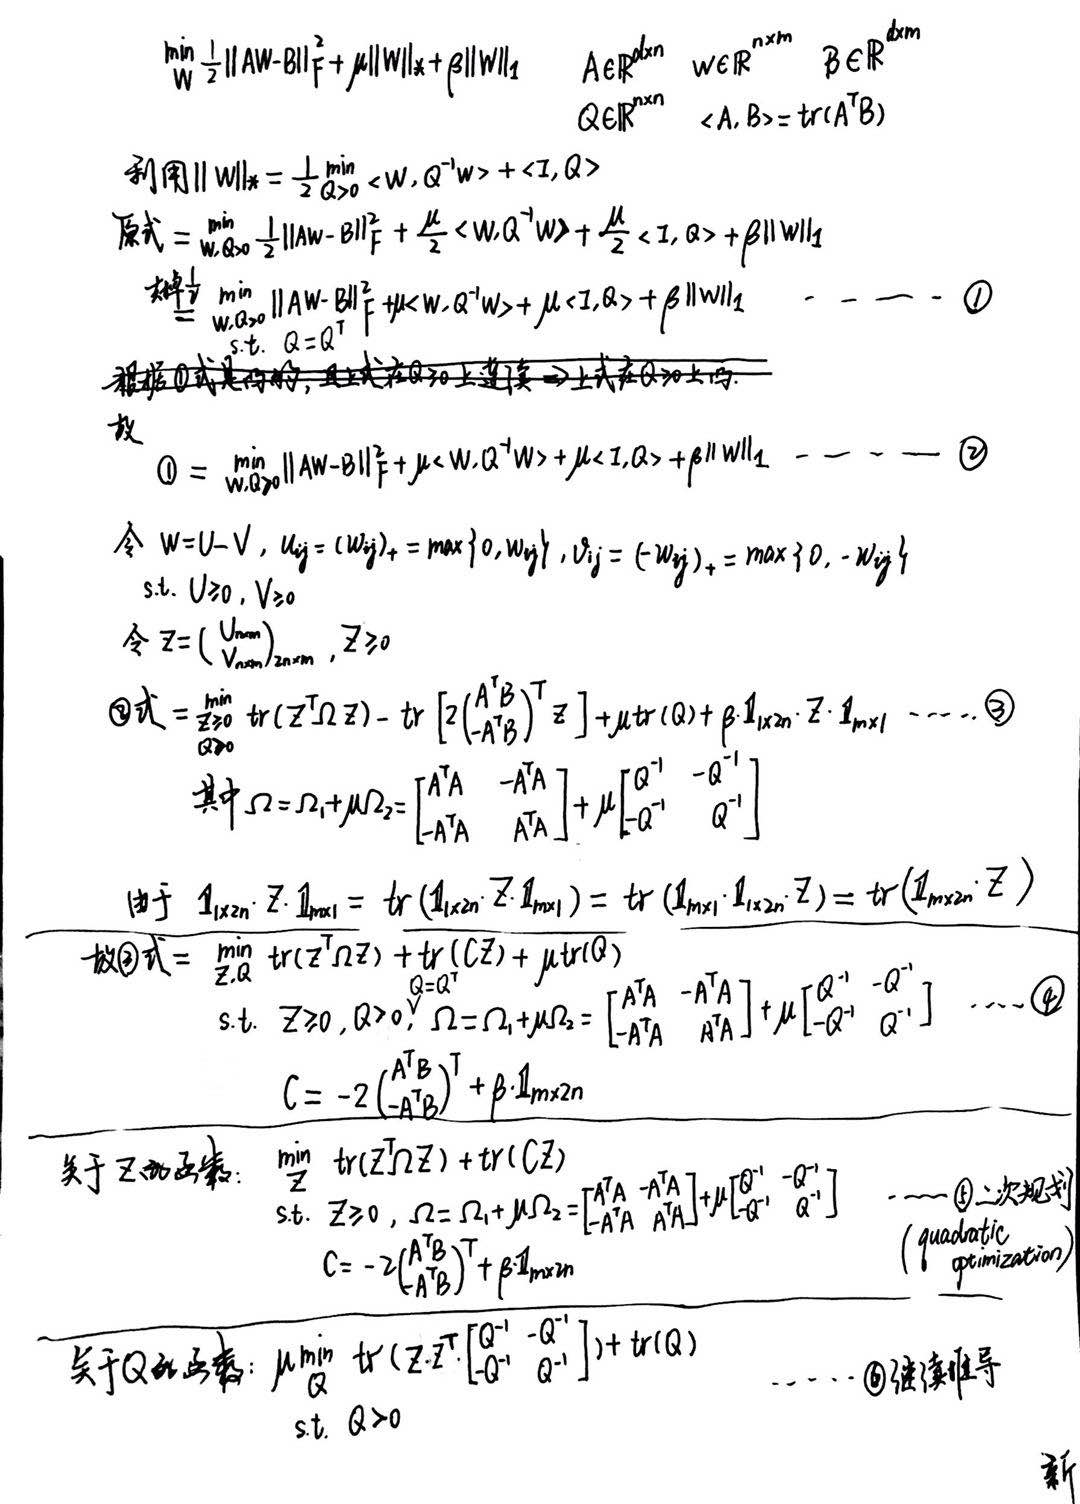 min_W 1/2 ||AW-B||_F^2 + μ||W||_* + β||W||_1 A∈ℝ^{d×n} W∈ℝ^{n×m} B∈ℝ^{d×m}
Q∈ℝ^{n×n} <A,B>=tr(A^T B)
利用 ||W||_* = 1/2 min_{Q>0} <W, Q^{-1}W> + <I, Q>
原式 = min_{W,Q>0} 1/2 ||AW-B||_F^2 + μ/2 <W,Q^{-1}W> + μ/2 <I,Q> + β||W||_1
去掉1/2 = min_{W,Q>0} ||AW-B||_F^2 + μ<W,Q^{-1}W> + μ<I,Q> + β||W||_1 ----- ①
s.t. Q=Q^T
根据①式是凸的, 且上式在Q≥0上连续 ⇒ 上式在Q≥0上凸.
故
① = min_{W,Q≥0} ||AW-B||_F^2 + μ<W,Q^{-1}W> + μ<I,Q> + β||W||_1 ----- ②
令 W=U-V, u_{ij}=(w_{ij})_+=max{0,w_{ij}}, v_{ij}=(-w_{ij})_+=max{0,-w_{ij}}
s.t. U≥0, V≥0
令 Z=(U_{n×m} V_{n×m})_{2n×m}, Z≥0
②式 = min_{Z≥0 Q≥0} tr(Z^TΩZ) - tr[2(A^TB -A^TB)^T Z] + μtr(Q) + β·𝟙_{1×2n}·Z·𝟙_{m×1} ----- ③
其中 Ω=Ω_1+μΩ_2=[A^TA -A^TA -A^TA A^TA]+μ[Q^{-1} -Q^{-1} -Q^{-1} Q^{-1}]
由于 𝟙_{1×2n}·Z·𝟙_{m×1} = tr(𝟙_{1×2n}·Z·𝟙_{m×1}) = tr(𝟙_{m×1}·𝟙_{1×2n}·Z) = tr(𝟙_{m×2n}·Z)
故③式 = min_{Z,Q} tr(Z^TΩZ) + tr(CZ) + μtr(Q)
s.t. Z≥0, Q>0, Q=Q^T Ω=Ω_1+μΩ_2=[A^TA -A^TA -A^TA A^TA]+μ[Q^{-1} -Q^{-1} -Q^{-1} Q^{-1}] ---- ④
C = -2(A^TB -A^TB)^T + β·𝟙_{m×2n}
关于Z的函数: min_Z tr(Z^TΩZ)+tr(CZ)
s.t. Z≥0, Ω=Ω_1+μΩ_2=[A^TA -A^TA -A^TA A^TA]+μ[Q^{-1} -Q^{-1} -Q^{-1} Q^{-1}] ----⑤二次规划
C=-2(A^TB -A^TB)^T+β·𝟙_{m×2n} (quadratic optimization)
关于Q的函数: μ min_Q tr(Z·Z^T·[Q^{-1} -Q^{-1} -Q^{-1} Q^{-1}])+tr(Q) ----- ⑥继续推导
s.t. Q>0
新